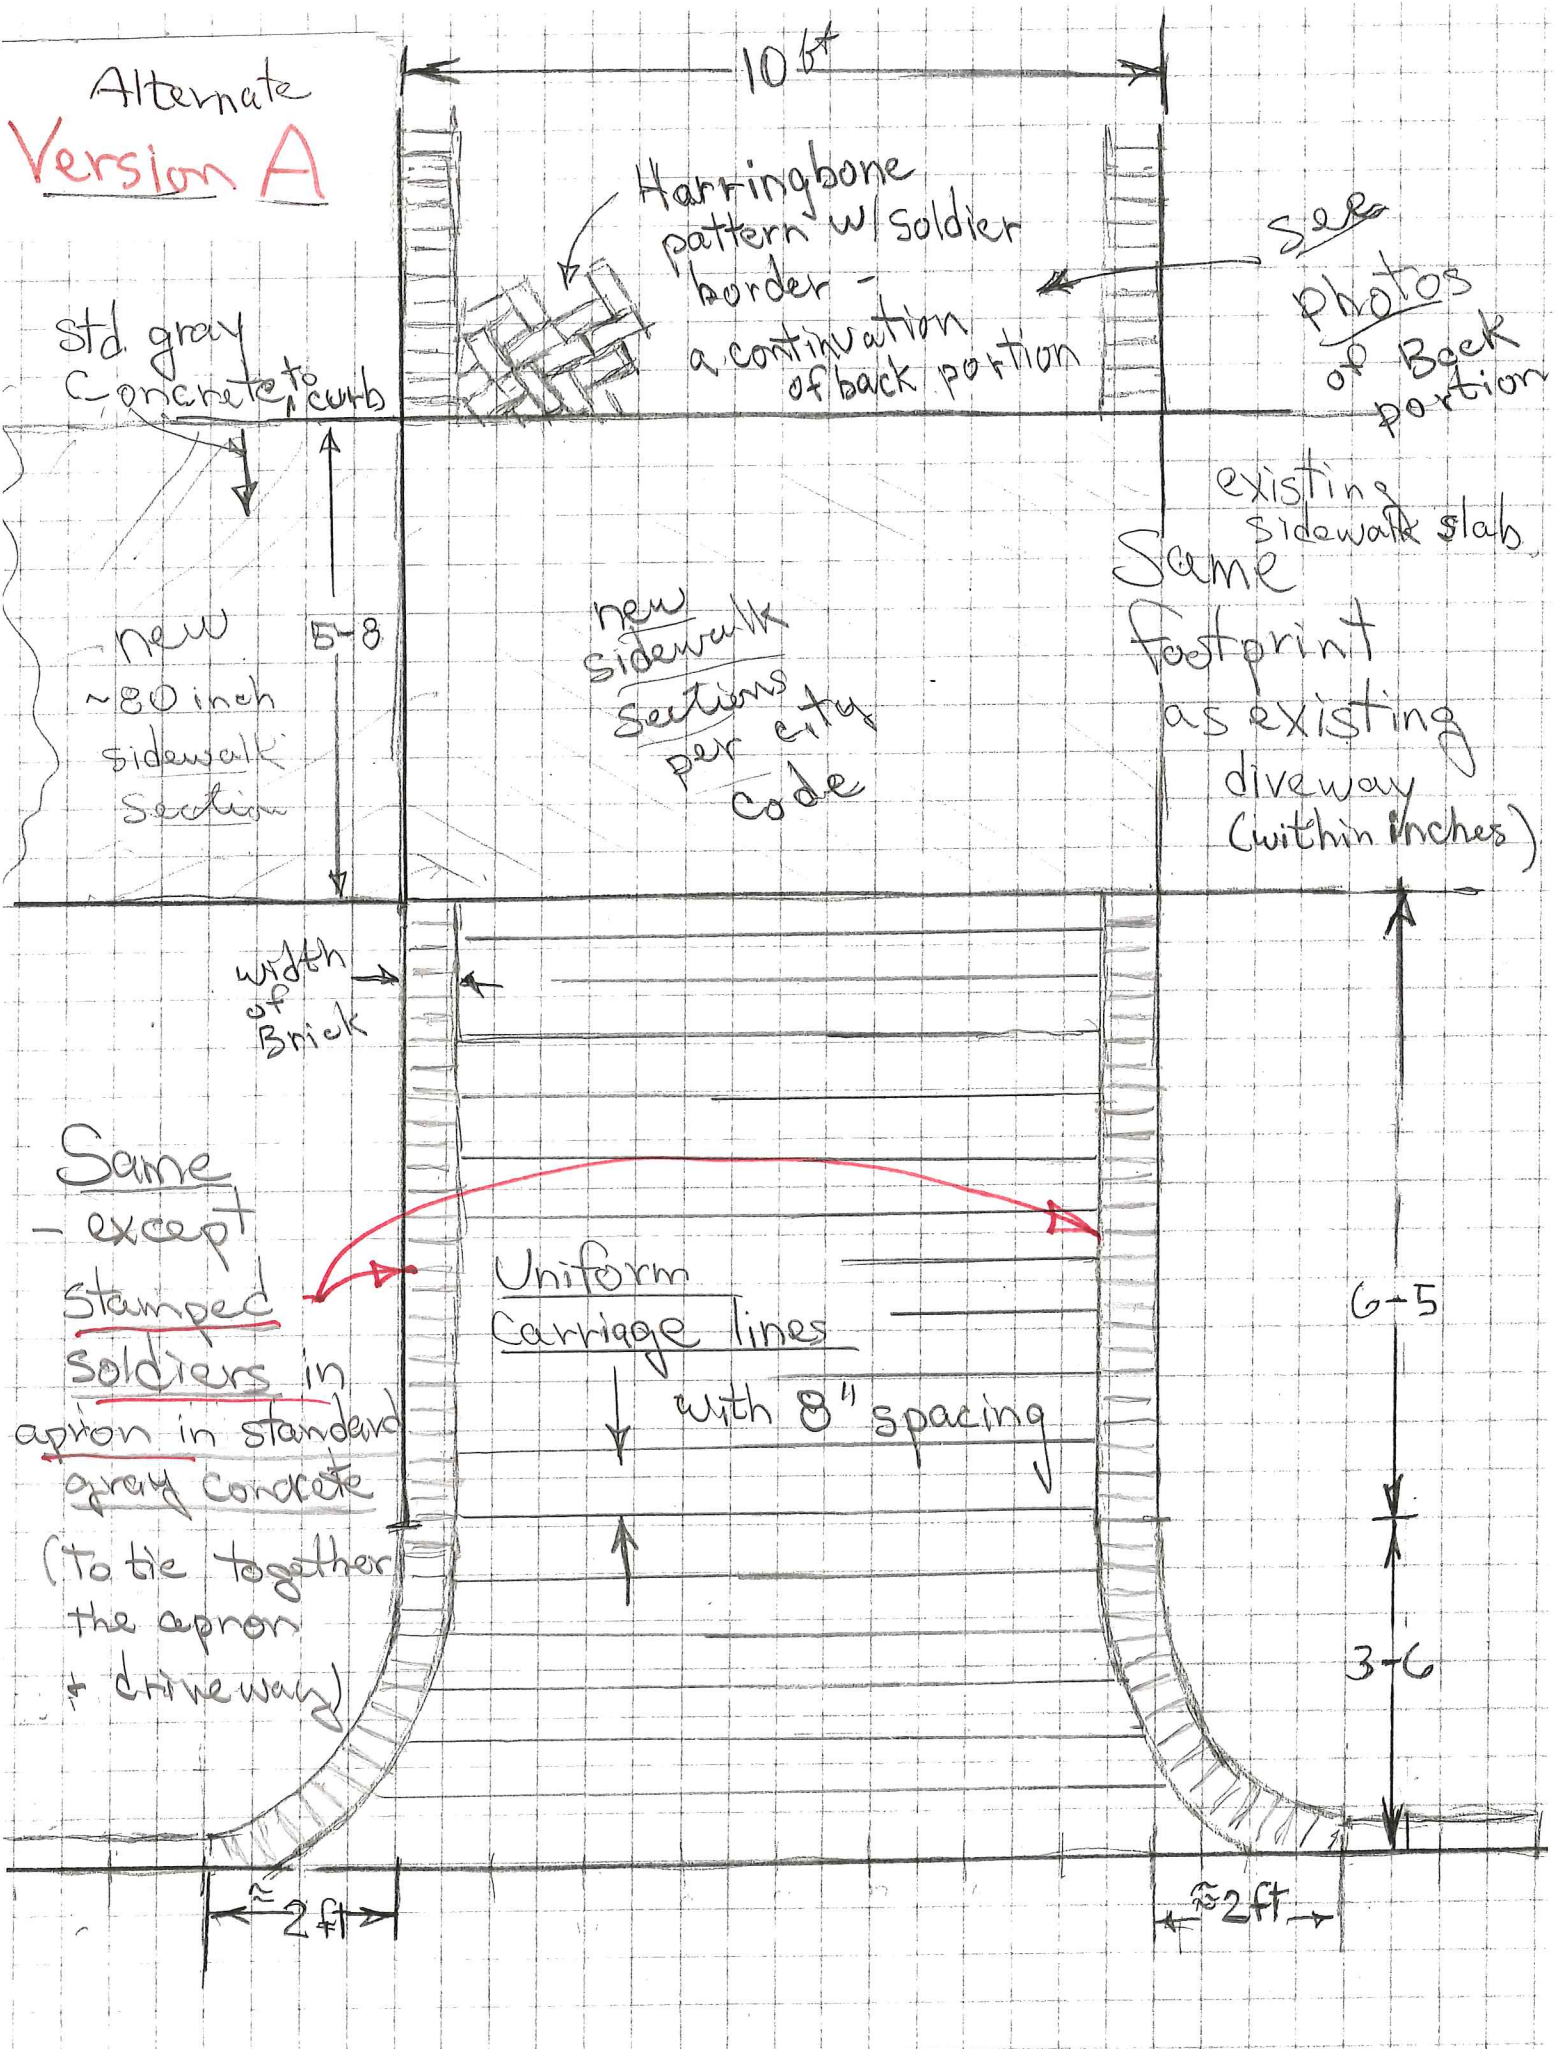 Alternate
Version A
10 ft
Harringbone
pattern w/ soldier
border -
a continuation
of back portion
see
photos
of Back
portion
std. gray
Concrete, to curb
existing
sidewalk slab
Same
footprint
as existing
diveway
(within inches)
new
~80 inch
sidewalk
section
5-8
new
sidewalk
sections
per city
code
width
of
Brick
Same
- except
Stamped
Soldiers in
apron in standard
gray concrete
(To tie together
the apron
+ driveway)
Uniform
Carriage lines
with 8" spacing
6-5
3-6
≈ 2 ft
≈ 2 ft